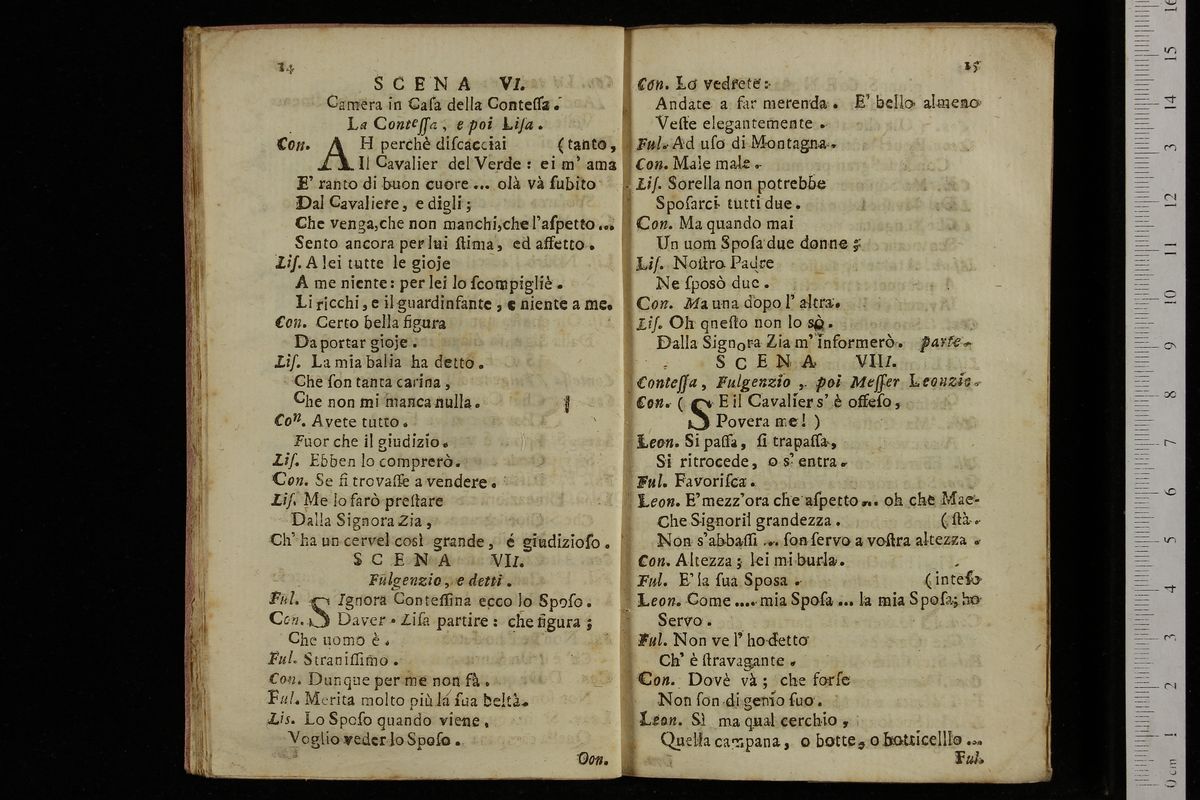 14
SCENA VI.
Camera in Caſa della Conteſſa.
La Conteſſa, e poi Liſa.
Con. AH perchè diſcacciai (tanto,
Il Cavalier del Verde: ei m' ama
E' ranto di buon cuore ... olà và ſubito
Dal Cavaliere, e digli;
Che venga,che non manchi,che l'aſpetto ...
Sento ancora per lui ſtima, ed affetto.
Liſ. A lei tutte le gioje
A me niente: per lei lo ſcompigliè.
Li ricchi, e il guardinfante, e niente a me.
Con. Certo bella figura
Da portar gioje.
Liſ. La mia balia ha detto.
Che ſon tanta carina,
Che non mi manca nulla.
Con. Avete tutto.
Fuor che il giudizio.
Liſ. Ebben lo comprerò.
Con. Se ſi trovaſſe a vendere.
Liſ. Me lo farò preſtare
Dalla Signora Zia,
Ch' ha un cervel così grande, é giudizioſo.
SCENA VII.
Fulgenzio, e detti.
Ful. SIgnora Conteſſina ecco lo Spoſo.
Con. Daver. Liſa partire: che figura;
Che uomo è.
Ful. Straniſſimo.
Con. Dunque per me non fà.
Ful. Merita molto più la ſua beltà.
Lis. Lo Spoſo quando viene,
Voglio veder lo Spoſo.
Oon.
15
Con. Lo vedrete:
Andate a far merenda. E' bello almeno
Veſte elegantemente.
Ful. Ad uſo di Montagna.
Con. Male male.
Liſ. Sorella non potrebbe
Spoſarci tutti due.
Con. Ma quando mai
Un uom Spoſa due donne;
Liſ. Noſtro Padre
Ne ſposò due.
Con. Ma una dopo l' altra.
Liſ. Oh qneſto non lo sò.
Dalla Signora Zia m' informerò. parte.
SCENA VIII.
Conteſſa, Fulgenzio, poi Meſſer Leonzio.
Con. (SE il Cavalier s' è offeſo,
Povera me!)
Leon. Si paſſa, ſi trapaſſa,
Si ritrocede, o s' entra.
Ful. Favoriſca.
Leon. E' mezz'ora che aſpetto ... oh che Mae-
Che Signoril grandezza. (ſtà.
Non s'abbaſſi ... ſon ſervo a voſtra altezza.
Con. Altezza; lei mi burla.
Ful. E' la ſua Sposa. (inteſo
Leon. Come .... mia Spoſa ... la mia Spoſa; ho
Servo.
Ful. Non ve l' ho detto
Ch' è ſtravagante.
Con. Dovè và; che forſe
Non ſon di genio ſuo.
Leon. Sì ma qual cerchio,
Quella campana, o botte, o botticelllo ...
Ful.